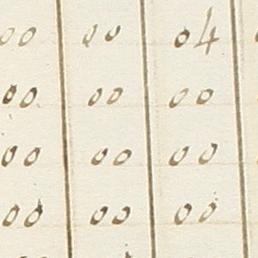 00 00 04
00 00 00
00 00 00
00 00 00